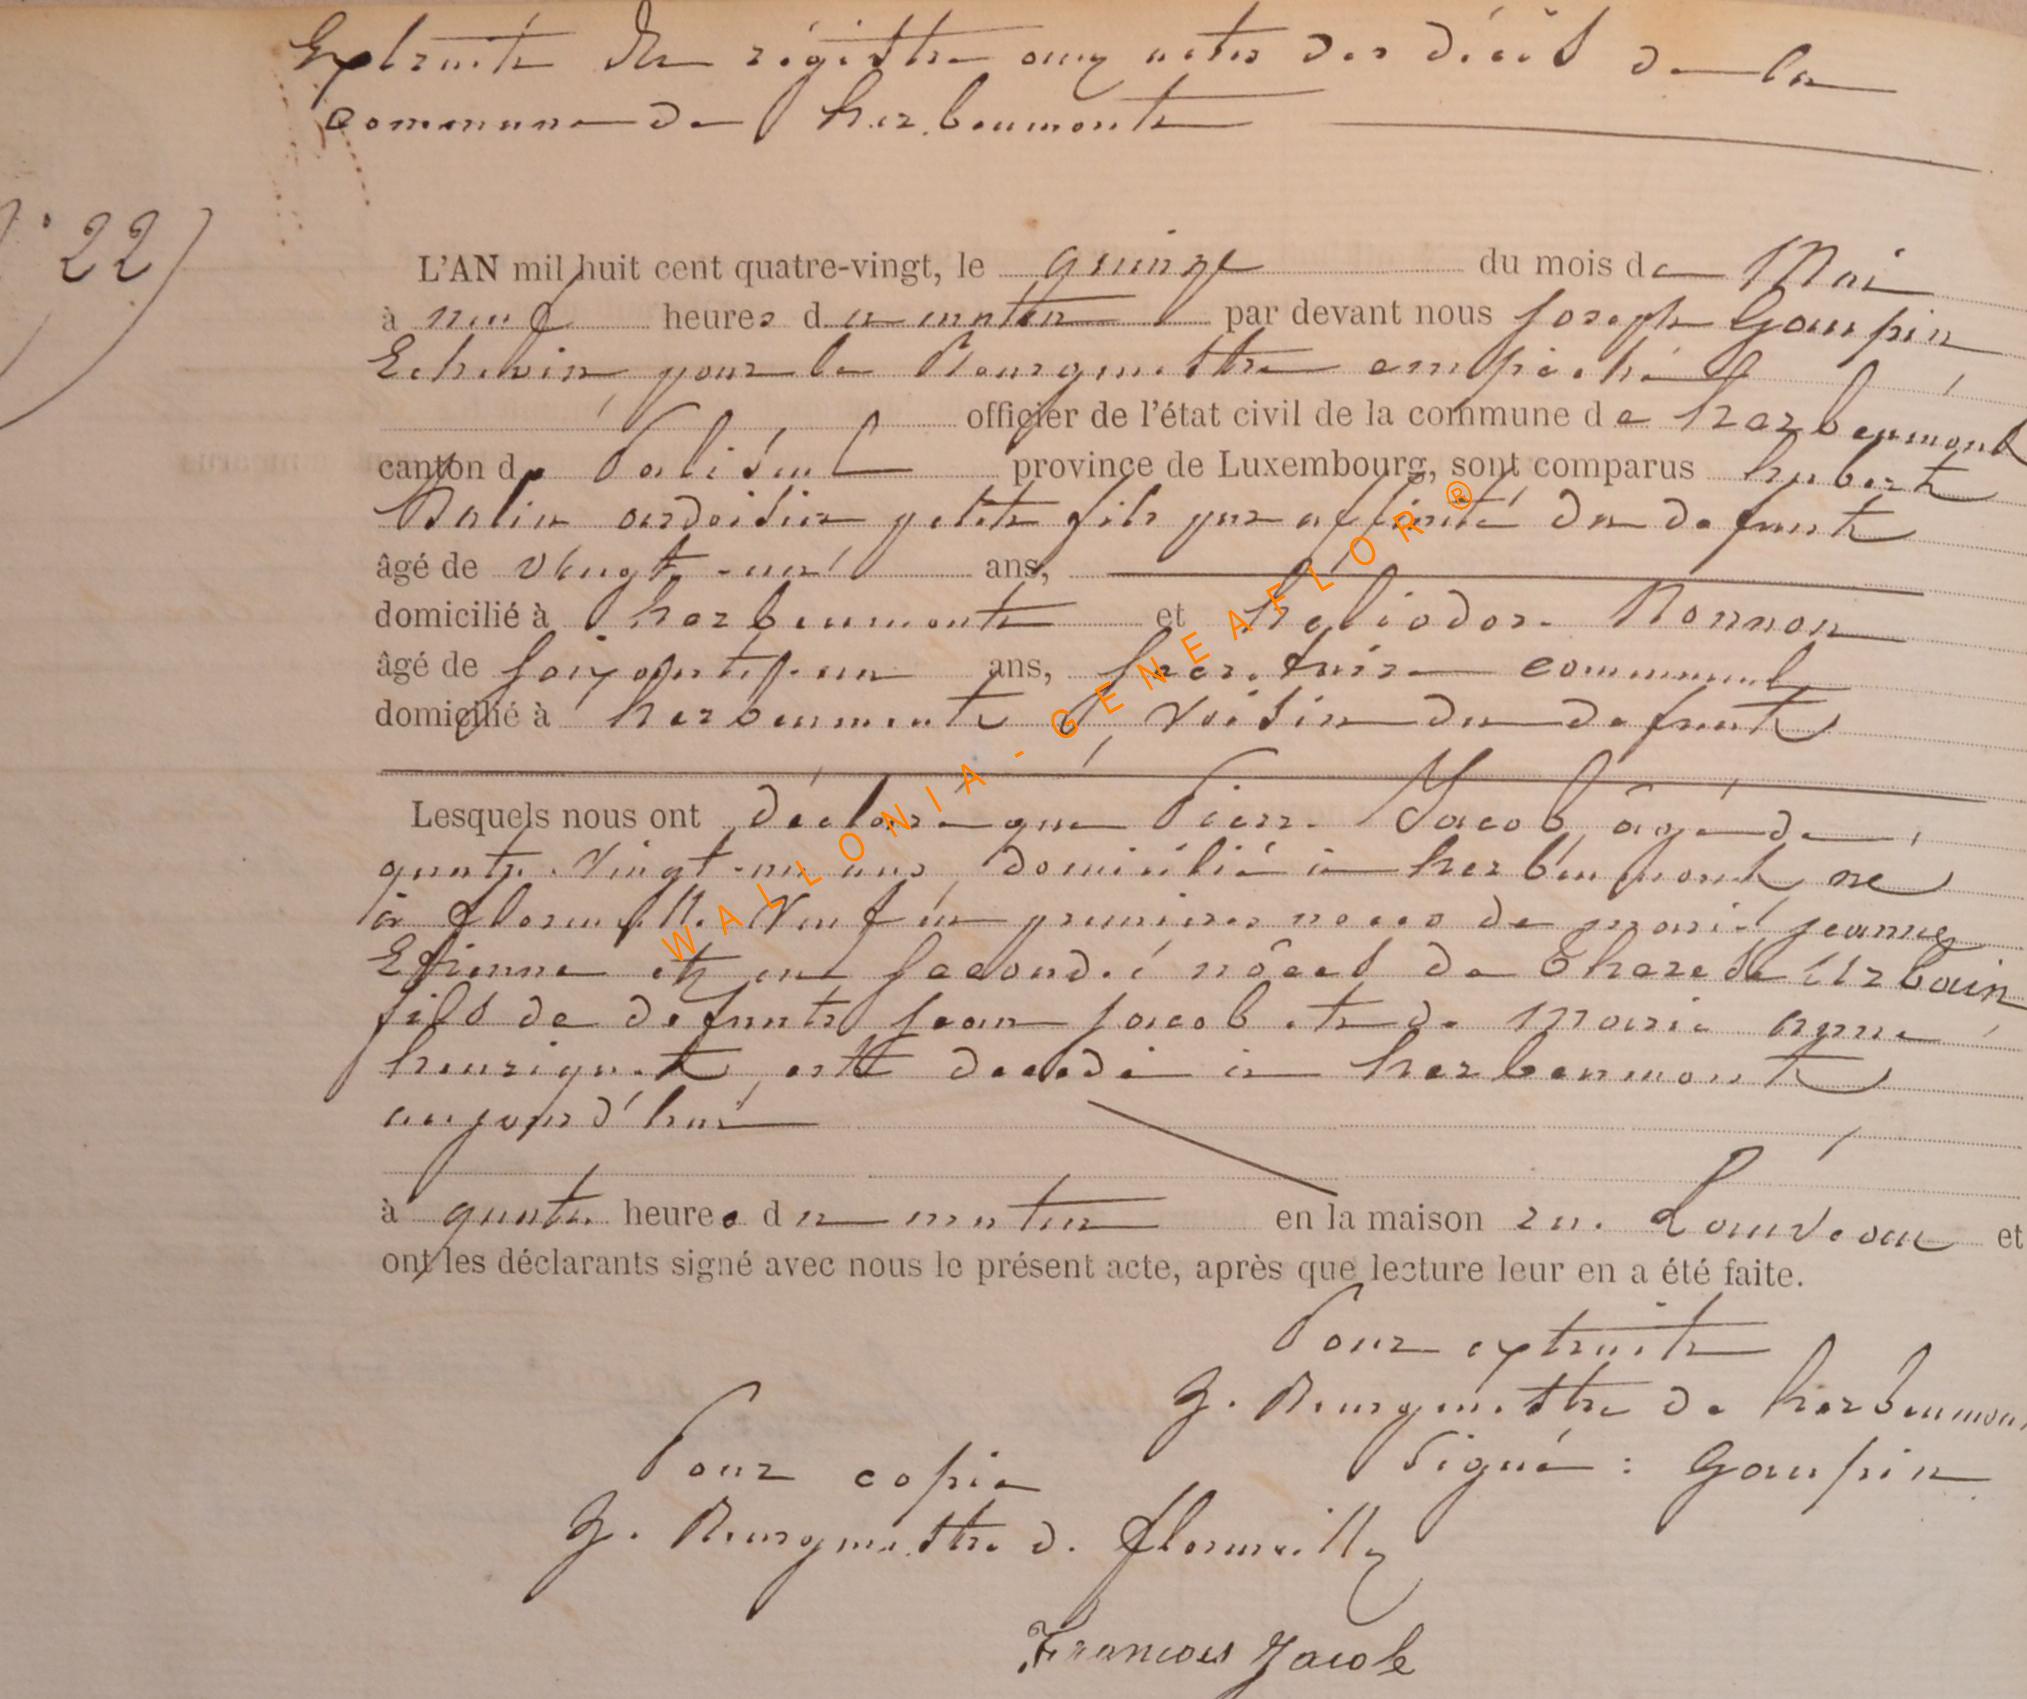 Extrait du régistre aux actes des décès de la
commune de herbeumont
N° 22
L'AN mil huit cent quatre-vingt, le quinze du mois de Mai
à neuf heures du matin par devant nous Joseph Goupin
Echevin pour le Bourgmestre empêché
officier de l'état civil de la commune de herbeumont
canton de Paliseul province de Luxembourg, sont comparus hubert
Balin ardoisier petit fils par affinité du defunt
âgé de vingt-un ans,
domicilié à herbeumont et heliodore Bonnon
âgé de soixante-un ans, secretaire communal
domicilié à herbeumont Voisin du defunt
Lesquels nous ont déclaré que Pierre Jacob âgé de
quatre-vingt-un ans domicilié à herbeumont né
à florenville Veuf en premieres noces de marie jeanne
Etienne et en secondes nôces de Therese Urbain
fils de defunts Jean Jacob et de Marie anne
henriquet, est decedé à herbeumont
aujourd'hui
à quatre heures du matin en la maison rue Lauveau et
ont les déclarants signé avec nous le présent acte, après que lecture leur en a été faite.
Pour extrait
Bourgmestre de herbeumont
Signé : Goupin
Pour copie
Bourgmestre de florenville
Francois Jacob
WALLONIA-GENEAFLOR®